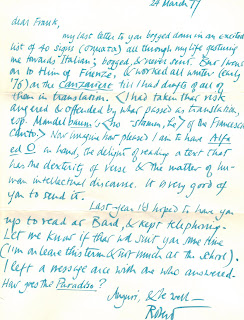 24 March 77
dear Frank,
my last letter to you bogged down in an excited
list of 40 signs (omata) all through my life gesturing
me towards Italian; bogged, & never sent. But I went
on to Hiem of Firenze, & worked all winter (early
76) on the Canzoniere till I had drafts of all of
them in translation. I had taken that risk
angered & offended by what passed as translation
esp. Mandelbaum.
Now imagine how pleased I am to have
in hand, the delight of reading a text that
has the dexterity of verse & the matter of human
intellectual discourse. It is very good of
you to send it.
Last year I'd hoped to have you
up to read at Bard, & kept telephoning.
Let me know if that wd suit you some time
(I'm on leave this term & not much at the school).
I left a message once with one who answered.
How goes the Paradiso?
Auguri, & be well —
Robert